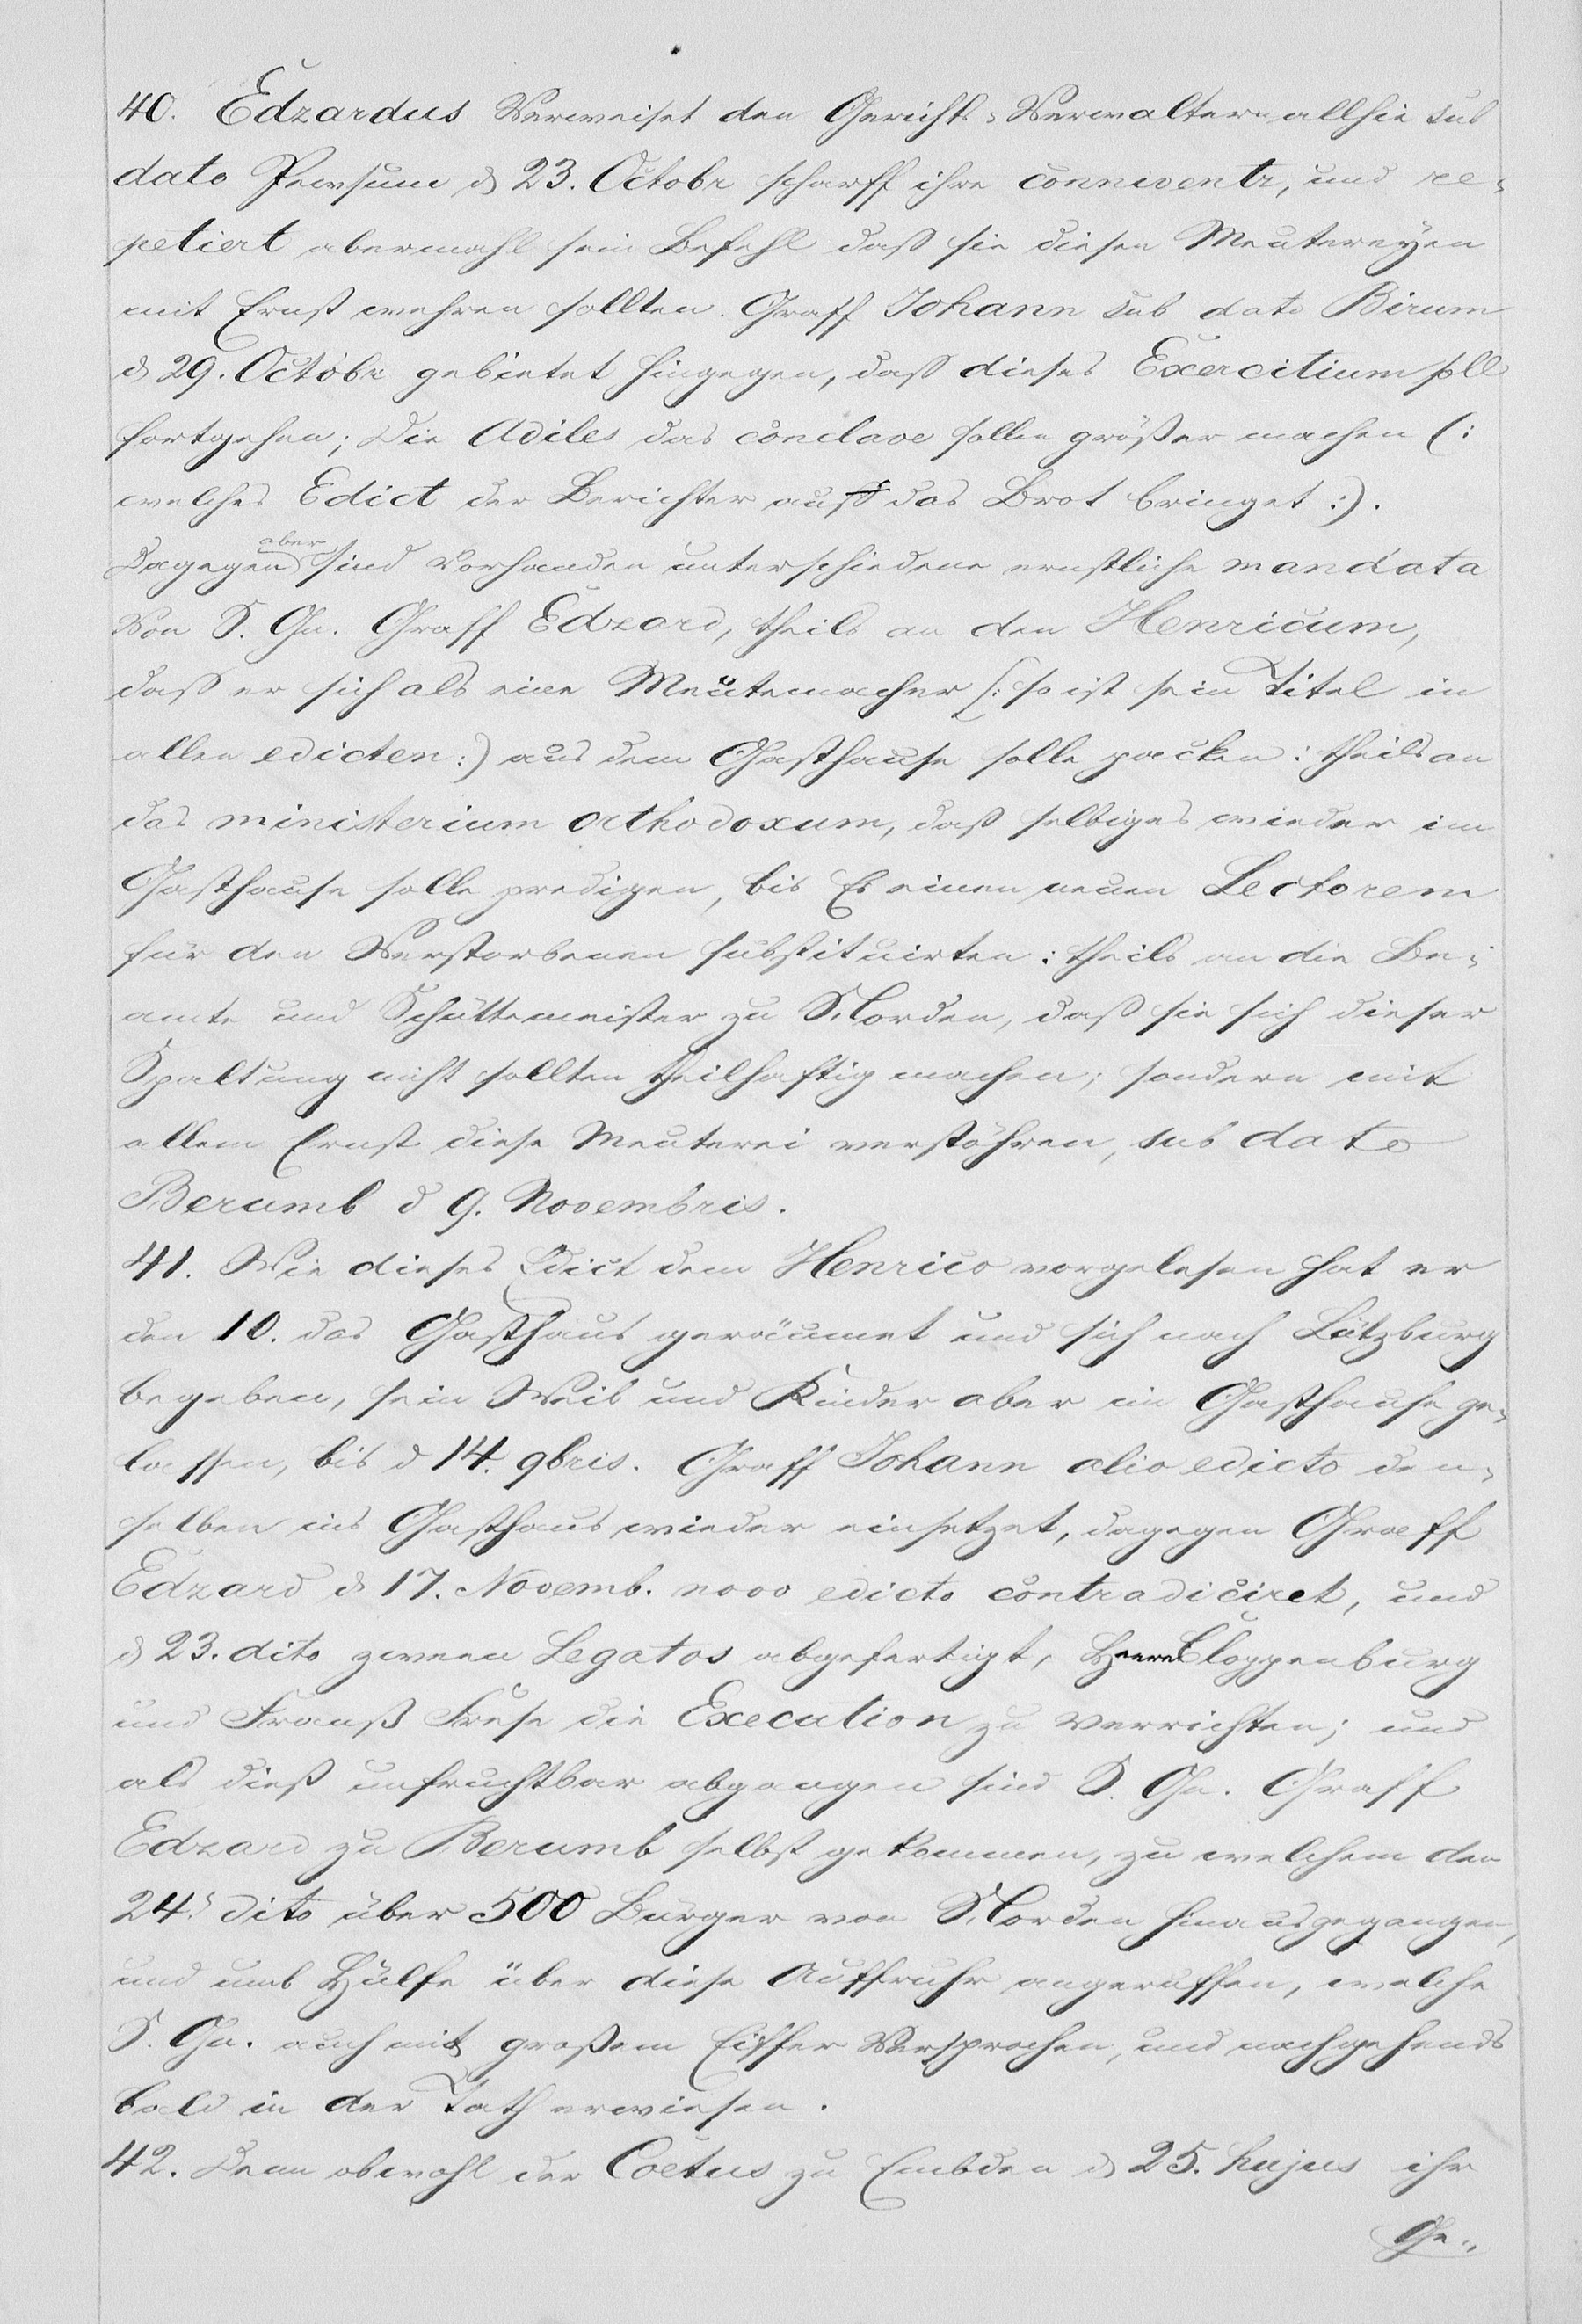 40. Edzardus Verweiset den Gerichts-Verwaltern allhie sub
dato Pewsum d 23. Octobr scharff ihre connivents, und re-
petiert abermahl sein Befehl daß sie diesen Meutereyen
mit Ernst wehren sollten. Graff Johann sub dato Birum
d 29. Octobr gebietet hingegen, daß dieses Exercitium soll
fortgehen; Die Adiles das conclave sollen größer machen (:
welches Edict der Berichter auff das Brot bringet :).
Dagegen aber sind vorhanden unterschiedene ernstliche mandata
Von S. Gn. Graff Edzard, theils an den Henricum,
daß er sich als eine Meutemacher (: so ist sein Titel in
allen edicten :) aus dem Gasthause solle packen: theils an
das ministerium orthodoxum, daß selbiges wieder im
Gasthause solle predigen, bis Er einen neuen Lectorem
für den Verstorbenen substituirten: theils an die Be-
amte und Schüttemeister zu Norden, daß sie sich dieser
Spaltung nicht sollten theilhaftig machen; sondern mit
allem Ernst diese Meuterei verstöhren, sub dato
Berumb d 9. Novembris.
41. Wie dieses Edict dem Henrico vorgelesen hat er
den 10. das Gasthaus geräumet und sich nach Lützburg
begeben, sein Weib und Kinder aber im Gasthause ge-
lassen, bis d 14. 9bris. Graff Johann alio edicto den-
selben ins Gasthaus wieder einsetzet, dagegen Graff
Edzard d 17. Novemb. novo edicto contradiciret, und
d 23. dito zween Legatos abgefertigt, Herrn Cloppenburg
und Franß Frese die Execution zu verrichten; und
als dieß unfruchtbar abgangen sind S. Gn. Graff
Edzard zu Berumb selbst gekommen, zu welchem den
24. dito über 500 Bürger von Norden hinausgegangen,
und umb Hülfe über diese Auffruhr angeruffen, welche
S. Gn. auch mit großem Eiffer Versprochen, und nachgehends
bald in der Tath erwiesen.
42. Denn obwohl der Coetus zu Embden d 25. hujus ihr
Ge-